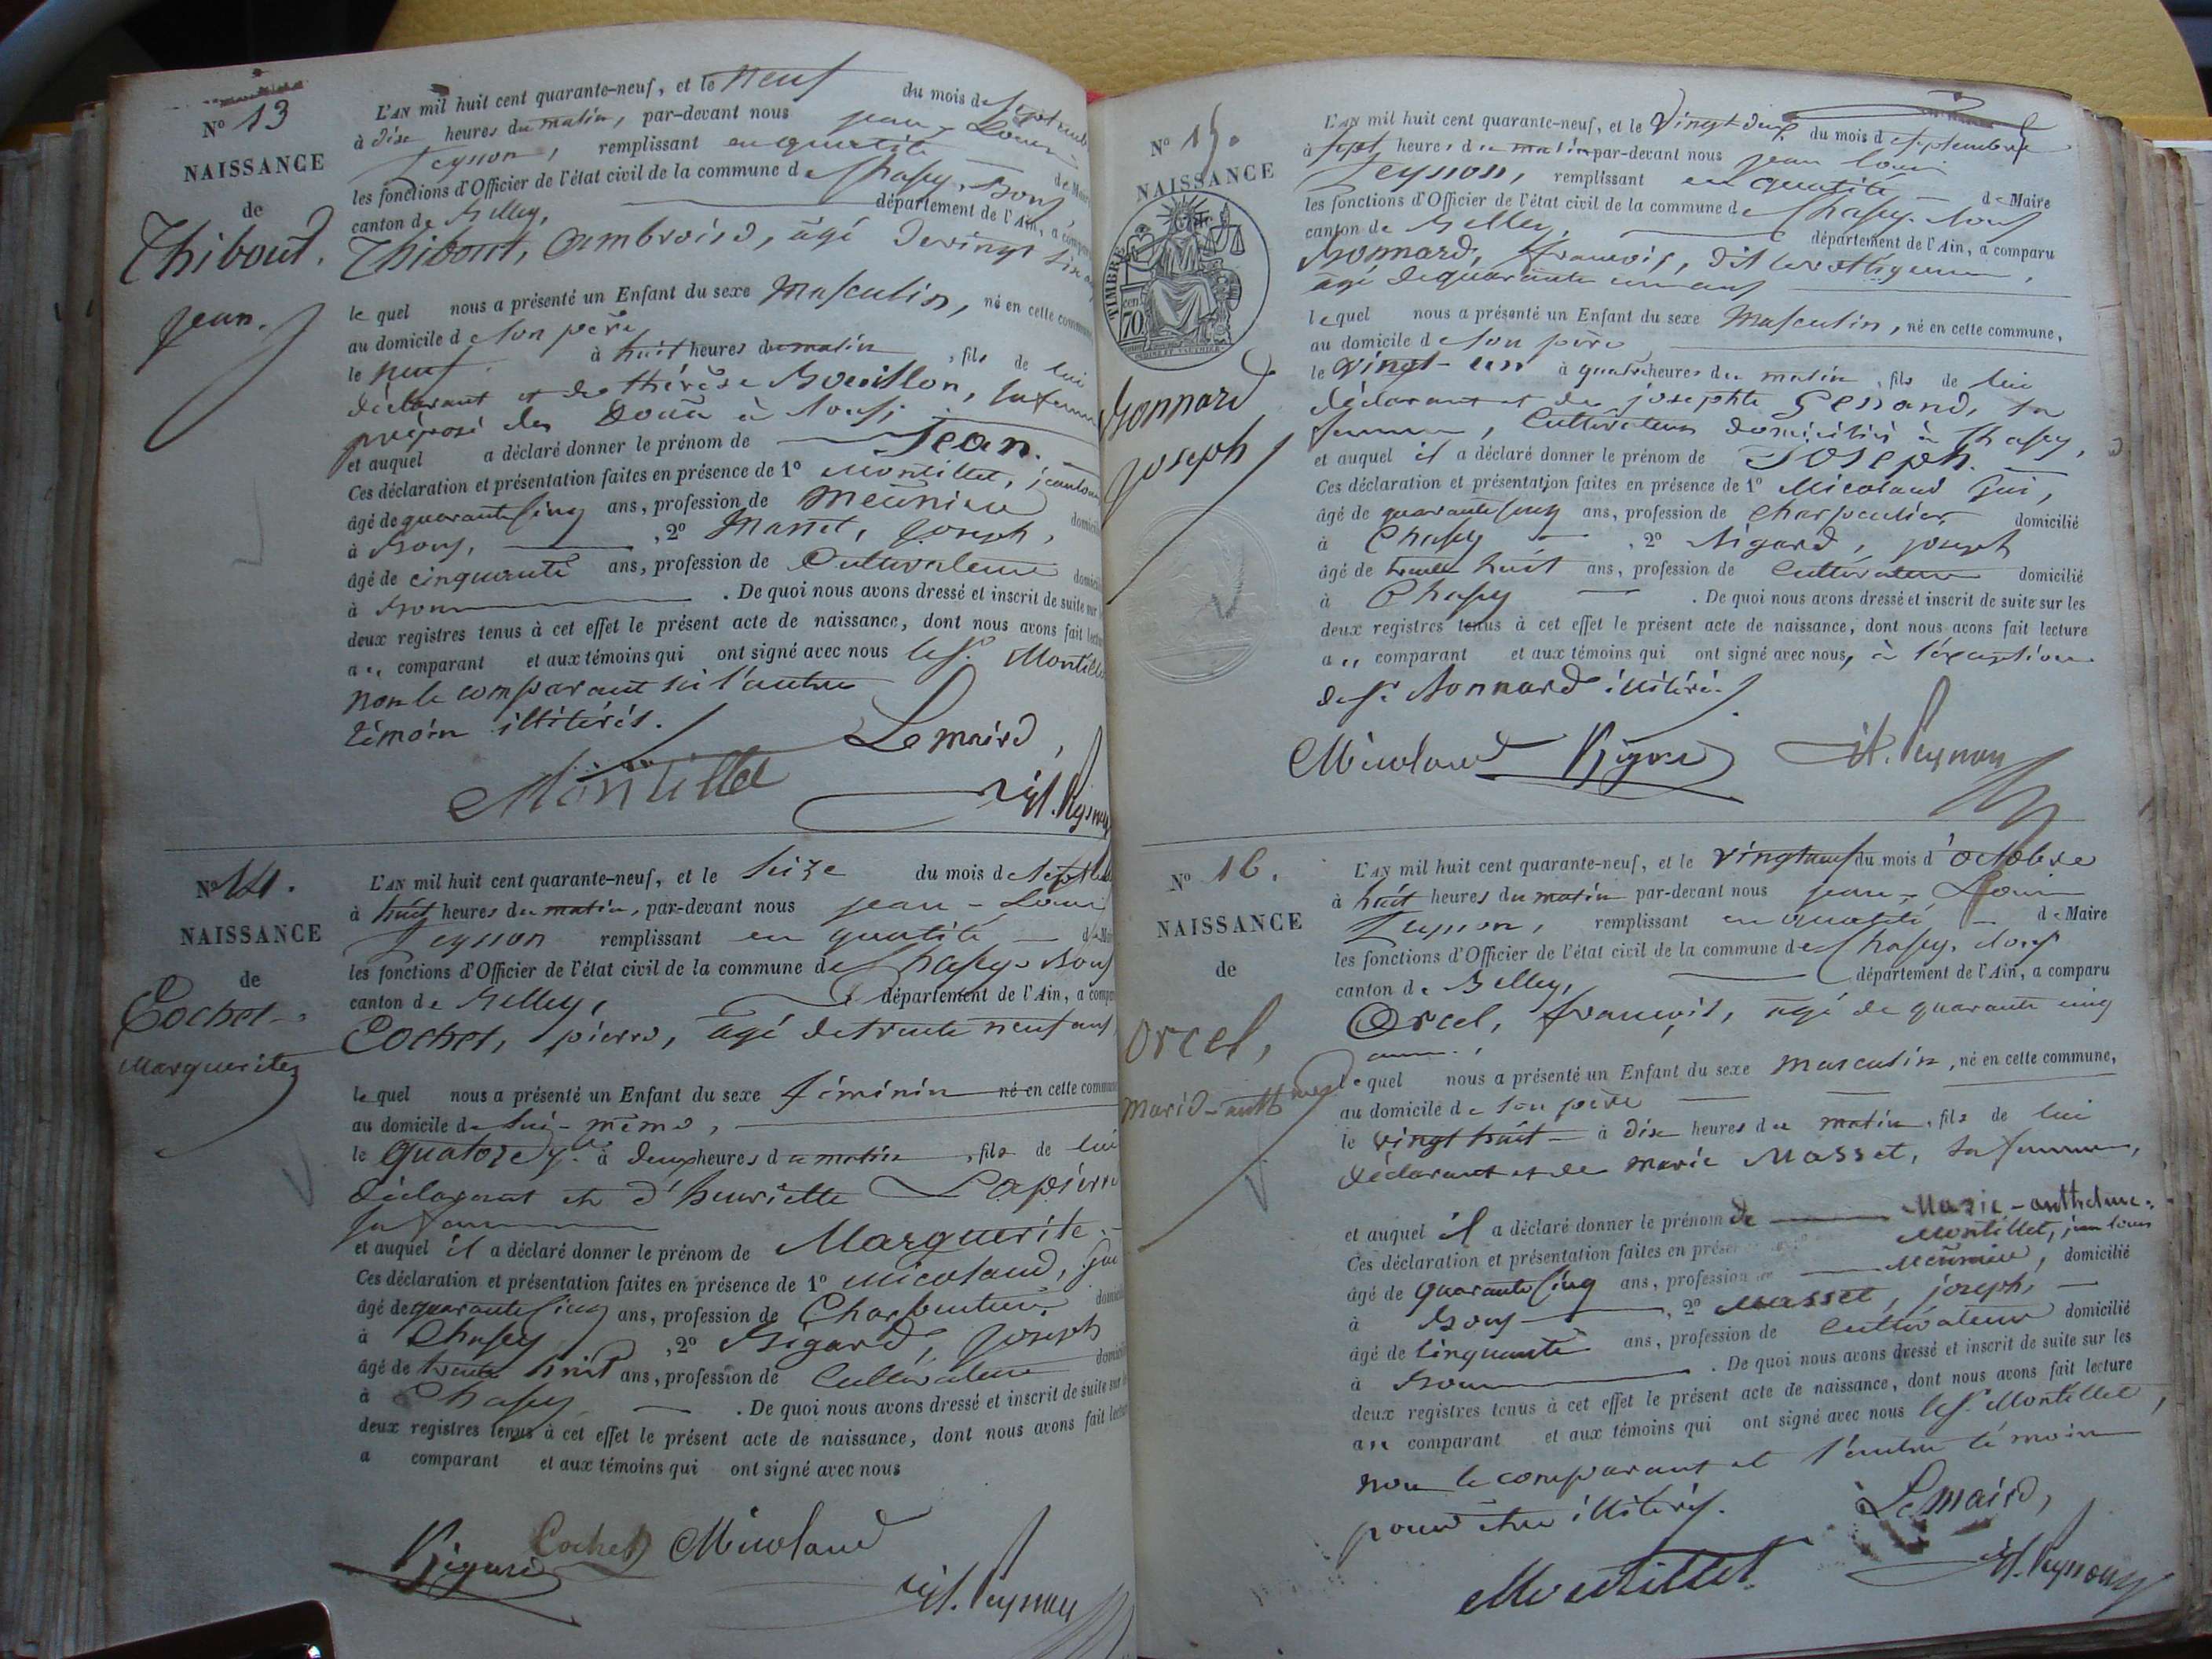 N° 13
NAISSANCE
de
Thibout,
jean.
L'AN mil huit cent quarante-neuf, et le neuf du mois de septemb
à dise heures du matin, par-devant nous jean-Louis
Peysson, remplissant en qualité de Maire
les fonctions d'Officier de l'état civil de la commune de Chasey, Bons,
canton de Belley, département de l'Ain, a comparu
Thibout, Ambroise, âgé de vingt six
le quel nous a présenté un Enfant du sexe masculin, né en cette commune
au domicile de son père
le neuf à huit heures du matin, fils de lui
déclarant et de thérèse Bouillon, sa femme
préposé des Doua à Bons;
et auquel a déclaré donner le prénom de Jean.
Ces déclaration et présentation faites en présence de 1° Montillet, jeanlouis
âgé de quarante cinq ans, profession de meunier domicilié
à Bons, , 2° Masset, joseph,
âgé de cinquante ans, profession de Cultivateur domicilié
à Bons . De quoi nous avons dressé et inscrit de suite sur
deux registres tenus à cet effet le présent acte de naissance, dont nous avons fait lecture
au comparant et aux témoins qui ont signé avec nous le sr. Montillet
non le comparant ni l'autre
témoin illitérés.
Le maire,
Montillet
N° 14.
NAISSANCE
de
Cochet
Marguerite
L'AN mil huit cent quarante-neuf, et le seize du mois de septemb
à huit heures du matin, par-devant nous jean-Louis
Peysson remplissant en qualité de Maire
les fonctions d'Officier de l'état civil de la commune de Chasey-Bons
canton de Belley, département de l'Ain, a comparu
Cochet, pierre, âgé de trente neuf ans
le quel nous a présenté un Enfant du sexe féminin né en cette commune
au domicile de lui-même,
le quatorze à deux heures du matin, fils de lui
déclarant et d'henriette Lapierre
sa femme
et auquel il a déclaré donner le prénom de Marguerite.
Ces déclaration et présentation faites en présence de 1° Micoland, gui
âgé de quarante cinq ans, profession de Charpentier domicilié
à Chasey , 2° Rigard, joseph
âgé de trente huit ans, profession de Cultivateur domicilié
à Chasey . De quoi nous avons dressé et inscrit de suite sur
deux registres tenus à cet effet le présent acte de naissance, dont nous avons fait lecture
a comparant et aux témoins qui ont signé avec nous
Rigard Cochet Micoland
N° 15.
NAISSANCE
TIMBRE
70
Bonnard
joseph
L'AN mil huit cent quarante-neuf, et le vingt deux du mois de septembre
à sept heures du matin par-devant nous jean louis
Peysson, remplissant en qualité de Maire
les fonctions d'Officier de l'état civil de la commune de Chasey-Bons
canton de Belley, département de l'Ain, a comparu
Bonnard, françois, dit
âgé de quarante un ans
le quel nous a présenté un Enfant du sexe Masculin, né en cette commune,
au domicile de son père
le vingt-un à quatre heures du matin, fils de lui
déclarant et de josephte Genand, sa
femme, Cultivateurs domiciliés à Chasey,
et auquel il a déclaré donner le prénom de Joseph.
Ces déclaration et présentation faites en présence de 1° Micoland gui,
âgé de quarante cinq ans, profession de charpentier domicilié
à Chasey , 2° Rigard, joseph
âgé de trente huit ans, profession de cultivateur domicilié
à Chasey . De quoi nous avons dressé et inscrit de suite sur les
deux registres tenus à cet effet le présent acte de naissance, dont nous avons fait lecture
au comparant et aux témoins qui ont signé avec nous, à l'exception
du sr. Bonnard illitéré.
Micoland Rigard
N° 16.
NAISSANCE
de
Orcel,
Marie-anthelme
L'AN mil huit cent quarante-neuf, et le vingt neuf du mois d'octobre
à huit heures du matin par-devant nous jean-Louis
Peysson, remplissant en qualité de Maire
les fonctions d'Officier de l'état civil de la commune de Chasey, Bons
canton de Belley, département de l'Ain, a comparu
Orcel, françois, âgé de quarante cinq
ans,
le quel nous a présenté un Enfant du sexe masculin, né en cette commune,
au domicile de son père
le vingt huit à dix heures du matin, fils de lui
déclarant et de marie Masset, sa femme,
et auquel il a déclaré donner le prénom de Marie-anthelme.
Ces déclaration et présentation faites en présence Montillet, jean louis
âgé de quarante cinq ans, profession de Meunier, domicilié
à Bons , 2° Masset, joseph,
âgé de cinquante ans, profession de cultivateur domicilié
à Bons . De quoi nous avons dressé et inscrit de suite sur les
deux registres tenus à cet effet le présent acte de naissance, dont nous avons fait lecture
au comparant et aux témoins qui ont signé avec nous le sr. Montillet,
non le comparant et l'autre témoin
pour être illitérés.
Le maire,
Montillet